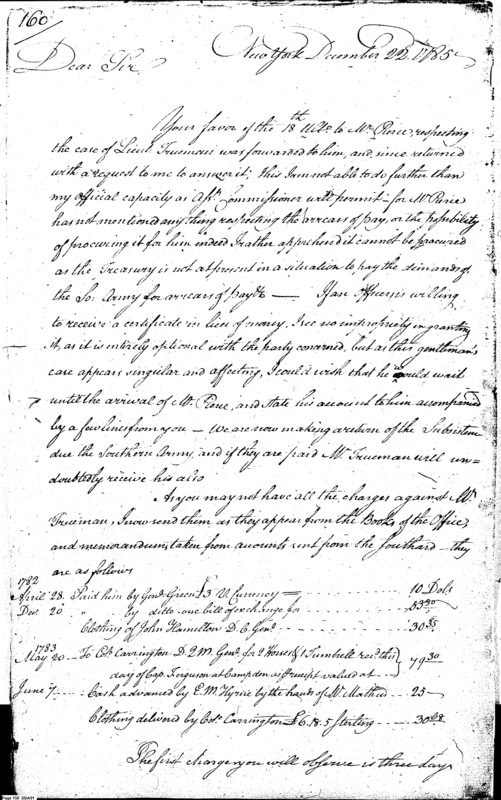 160
New York December 22. 1785
Dear Sir
Your favor of the 18th Ulto. to Mr. Pierce, respecting
the case of Lieut. Trueman was forwarded to him, and, since returned
with a request to me to answer it; this I am not able to do further than
my official capacity as Asst. Commissioner will permit – for Mr. Pierce
has not mentioned any thing respecting the arrears of pay, or the possibility
of procuring it for him indeed I rather apprehend it cannot be procured
as the Treasury is not at present in a situation to pay the demands of
the So. Army for arrears of pay &c — If an Officer is willing
to receive a certificate in lieu of money, I see no impropriety in granting
it, as it is entirely optional with the party concerned, but as this gentleman's
case appears singular and affecting, I could wish that he would wait
until the arrival of Mr. Pierce, and state his account to him accompanied
by a few lines from you – We are now making a return of the Subsistence
due the Southern Army, and if they are paid Mr. Trueman will un=
doubtedly receive his also
As you may not have all the charges against Mr.
Trueman, I now send them as they appear from the Books of the Office,
and memorandums taken from accounts sent from the Southard – they
are as follows
1782
April 28. Paid him by Genl. Green £3 V. Currency = 10 Dols
Dec. 20 " by ditto – one bill of exchange for 53 30
Clothing of John Hamilton D.C. Genl. 30 35
1783
May 20 – To Col. Carrington D.Q.M. Genl. for 2 Horses & 1 Tumbrell recd. this
day of Cap. Ferguson at Campden as pr receipt valued at 79 30
June 7 Cash advanced by E.M. Hyrne by the hands of Mr. 25 –
Clothing delivered by Col. Carrington £6.18.5 Sterling 30 68
The first charge you will observe is three days
Page 159